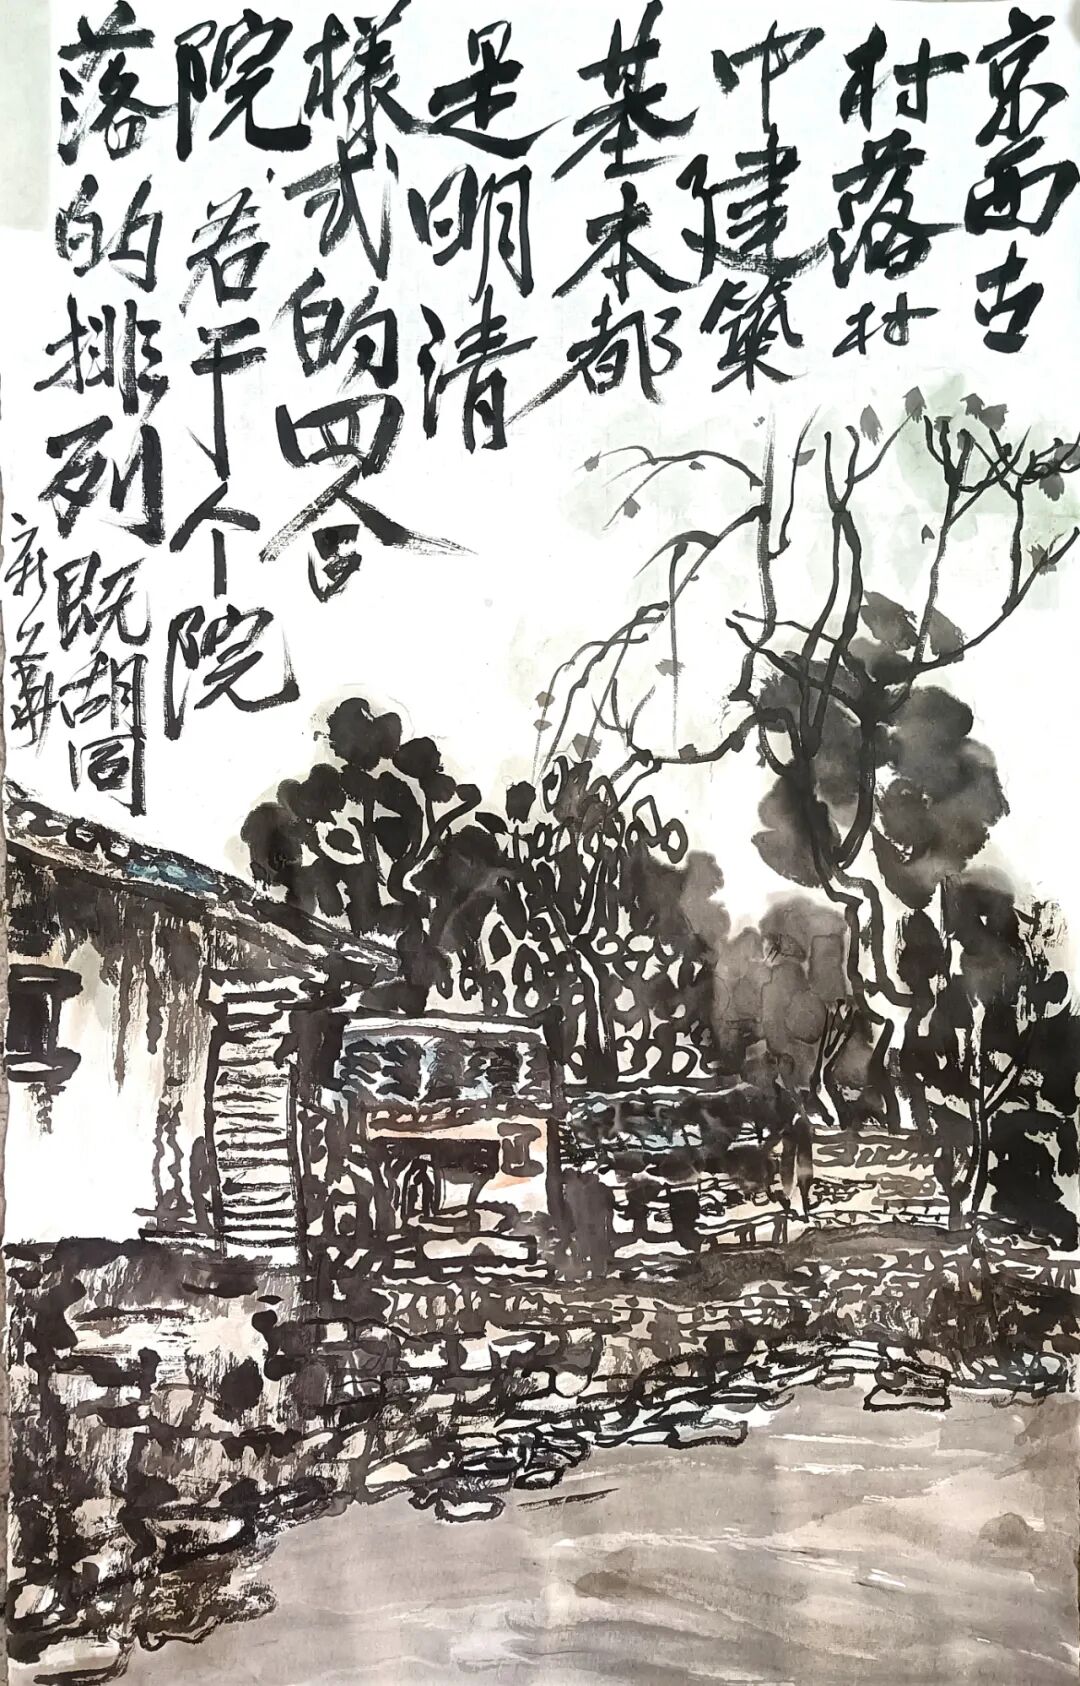 京西古
村落村
中建築
基本都
是明清
樣式的四合
院，若干个院
落的排列既胡同